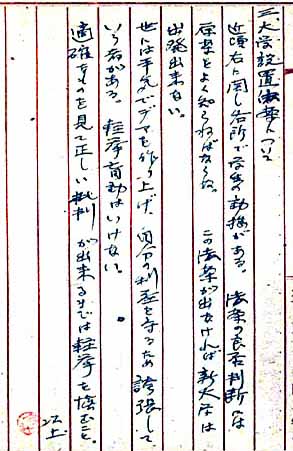 三、大学設置法案について
近頃右に関し各所で学生の動揺がある。 法案の良否判断は
原案をよく知らねばならぬ。 この法案が出なければ新大学は
出発出来ない。
世には平気でデマを作り上げ、自分の利益を守るため誇張して
いる者がある。 軽挙盲動はいけない。
適確なものを見て正しい批判が出来るまでは軽挙を慎むこと。
以上